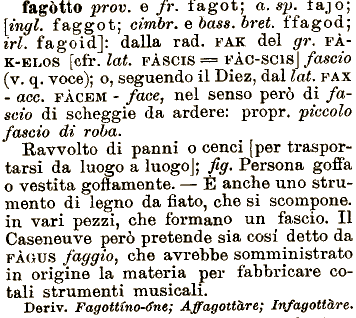 fagòtto prov. e fr. fagot; a. sp. fajo;
[ingl. faggot; cimbr. e bass. bret. ffagod;
irl. fagoid]: dalla rad. FAK del gr. FÀ-
K-ELOS [cfr. lat. FÀSCIS = FÀC-SCIS] fascio
(v. q. voce); o, seguendo il Diez, dal lat. FAX
- acc. FÀCEM - face, nel senso però di fa-
scio di scheggie da ardere: propr. piccolo
fascio di roba.
Ravvolto di panni o cenci [per traspor-
tarsi da luogo a luogo]; fig. Persona goffa
o vestita goffamente. — È anche uno stru-
mento di legno da fiato, che si scompone.
in vari pezzi, che formano un fascio. Il
Caseneuve però pretende sia così detto da
FÀGUS faggio, che avrebbe somministrato
in origine la materia per fabbricare co-
tali strumenti musicali.
Deriv. Fagottíno-óne; Affagottàre; Infagottàre.